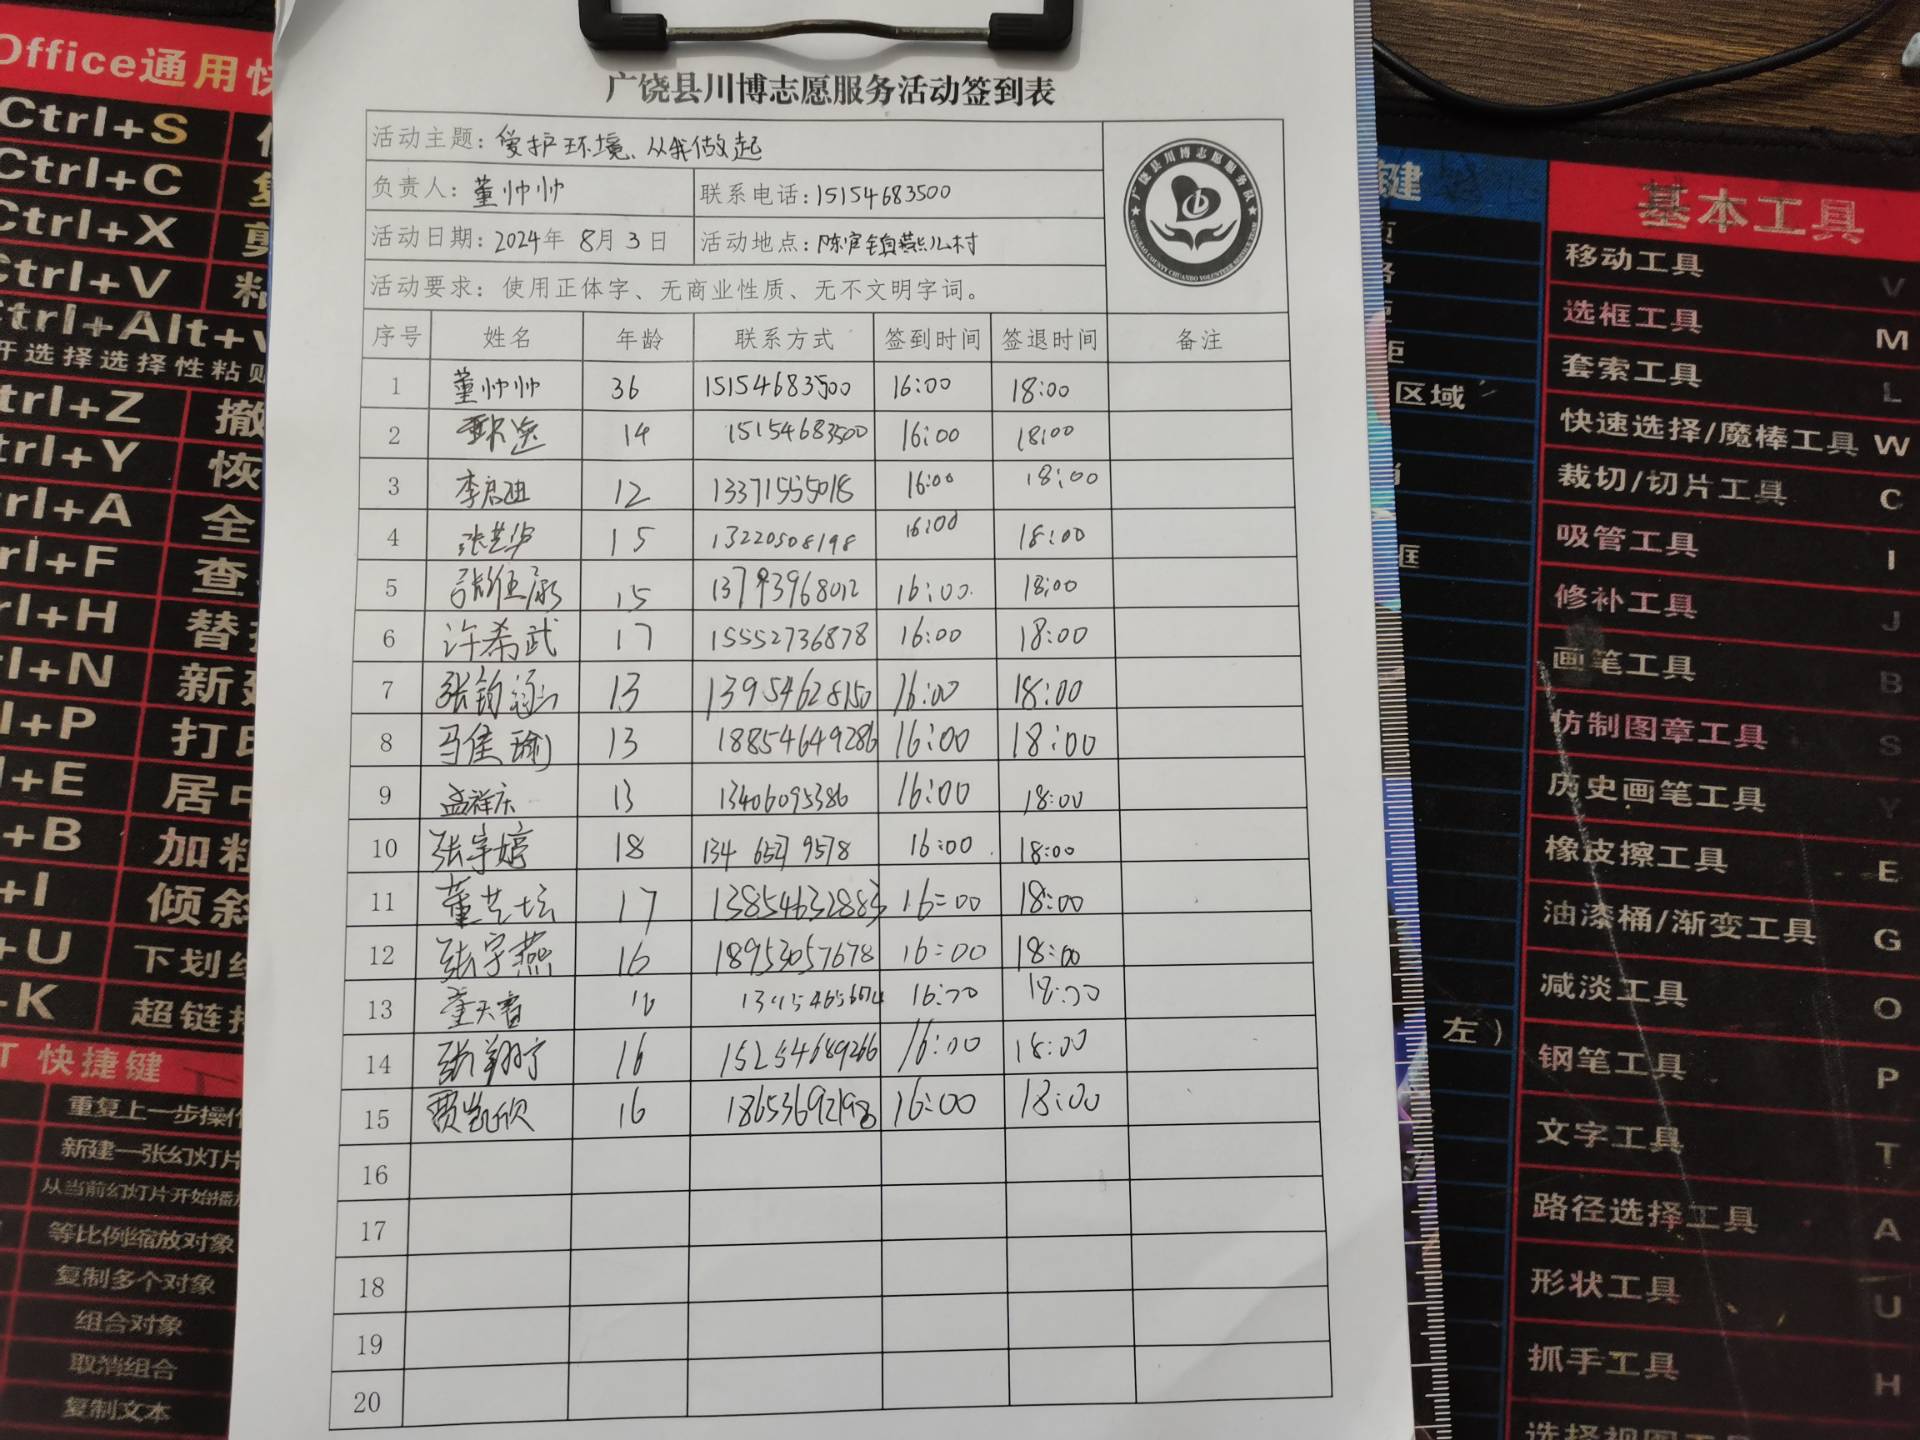 广饶县川博志愿服务活动签到表
活动主题: 爱护环境、从我做起
负责人: 董帅帅 联系电话: 15154683500
活动日期: 2024年 8月 3日 活动地点: 陈官镇燕儿村
活动要求: 使用正体字、无商业性质、无不文明字词。
广饶县川博志愿服务队
GUANGRAO COUNTY CHUANBO VOLUNTEER SERVICE TEAM
序号 姓名 年龄 联系方式 签到时间 签退时间 备注
1 董帅帅 36 15154683500 16:00 18:00
2 14 15154683500 16:00 18:00
3 李启迪 12 13371555018 16:00 18:00
4 张芸华 15 13220508198 16:00 18:00
5 15 13793968012 16:00 18:00
6 许希武 17 15552736878 16:00 18:00
7 张钧涵 13 13954628150 16:00 18:00
8 马佳瑜 13 18854649286 16:00 18:00
9 孟祥庆 13 13406095386 16:00 18:00
10 张宇婷 18 134 6527 9578 16:00 18:00
11 董艺坛 17 13854632883 16:00 18:00
12 张宇燕 16 18953057678 16:00 18:00
13 董天睿 16:00 18:00
14 张翔宁 16 15254689266 16:00 18:00
15 贾凯欣 16 18653692198 16:00 18:00
16
17
18
19
20
Office通用快
Ctrl+S
Ctrl+C
Ctrl+X 剪
Ctrl+V 粘
Ctrl+Alt+v
开选择选择性粘贴
trl+Z 撤
trl+Y 恢
trl+A 全
rl+F 查
rl+H 替
rl+N 新建
l+P 打印
l+E 居中
+B 加粗
+I 倾斜
+U 下划线
+K 超链接
T 快捷键
重复上一步操作
新建一张幻灯片
从当前幻灯片开始播放
等比例缩放对象
复制多个对象
组合对象
取消组合
复制文本
键
区域
框
左）
基本工具
移动工具 V
选框工具 M
套索工具 L
快速选择/魔棒工具 W
裁切/切片工具 C
吸管工具 I
修补工具 J
画笔工具 B
仿制图章工具 S
历史画笔工具 Y
橡皮擦工具 E
油漆桶/渐变工具 G
减淡工具 O
钢笔工具 P
文字工具 T
路径选择工具 A
形状工具 U
抓手工具 H
选择视图工具